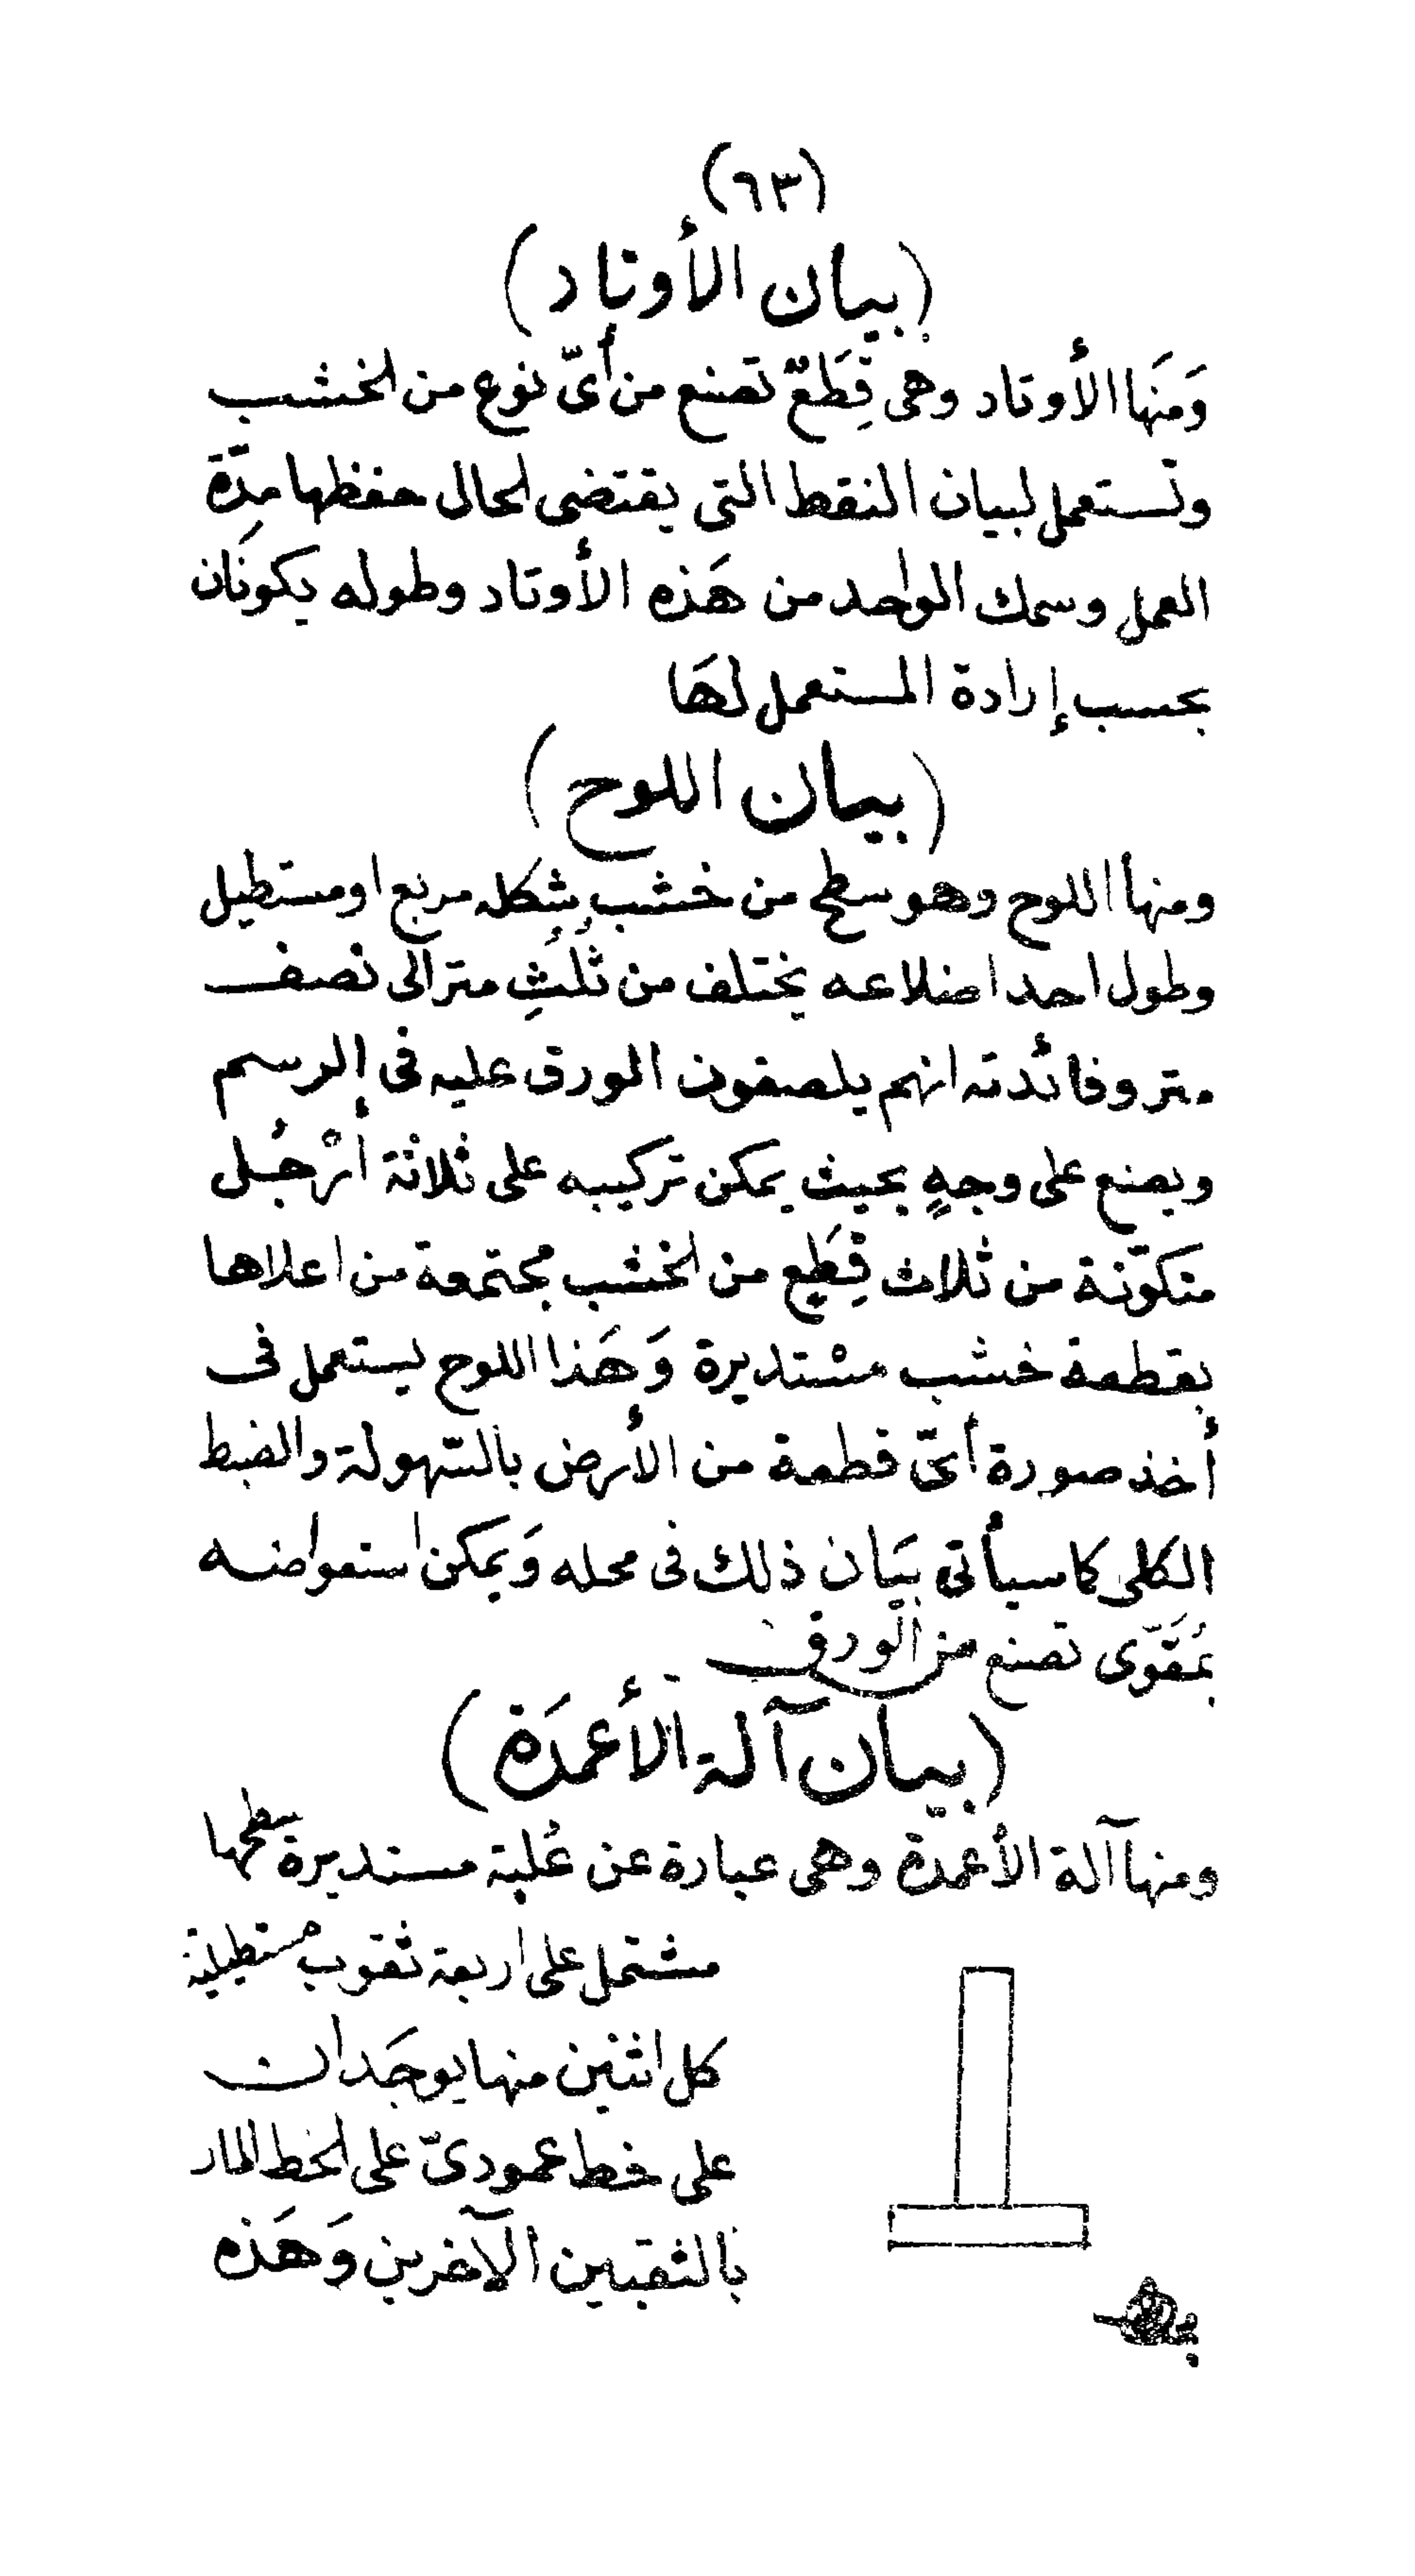 (٦٣)
(بيان الأوتاد)
وَمنَها الأوتاد وهى قِطَعٌ تصنع من أىّ نوع من الخشب
وتستعمل لبيان النقط التى يقتضى الحال حفظها مدّة
العمل وسمك الواحد من هَذه الأوتاد وطوله يكونَان
بحسب إرادة المستعمل لهَا
(بيان اللوح)
ومنها اللوح وهو سطح من خشب شكله مربع او مستطيل
وطول احد اضلاعه يختلف من ثُلُثِ متر الى نصف
متر وفائدته انهم يلصقون الورق عليه فى الرسم
ويصنع على وجهٍ بحيث يمكن تركيبه على ثلاثة أرْجُل
متكوّنة من ثلاث قِطَعٍ من الخشب مجتمعة من اعلاها
بقطعة خشب مسْتديرة وَهَذا اللوح يستعمل فى
أخذ صورة أىّ قطعة من الأرض بالسّهولة والضبط
الكلى كما سيأتى بيَان ذلك فى محله وَيمكن استعواضه
بمُقَوّى تصنع من الورق
(بيان آلة الأعمدَة)
ومنها آلة الأعمدة وهى عبارة عن عُلبة مستديرة سطحها
مشتمل على اربعة ثقوب مستطيلة
كل اثنين منها يوجَدان
على خط عمودىّ على الخط المار
بالثقبين الآخرين وَهَذه